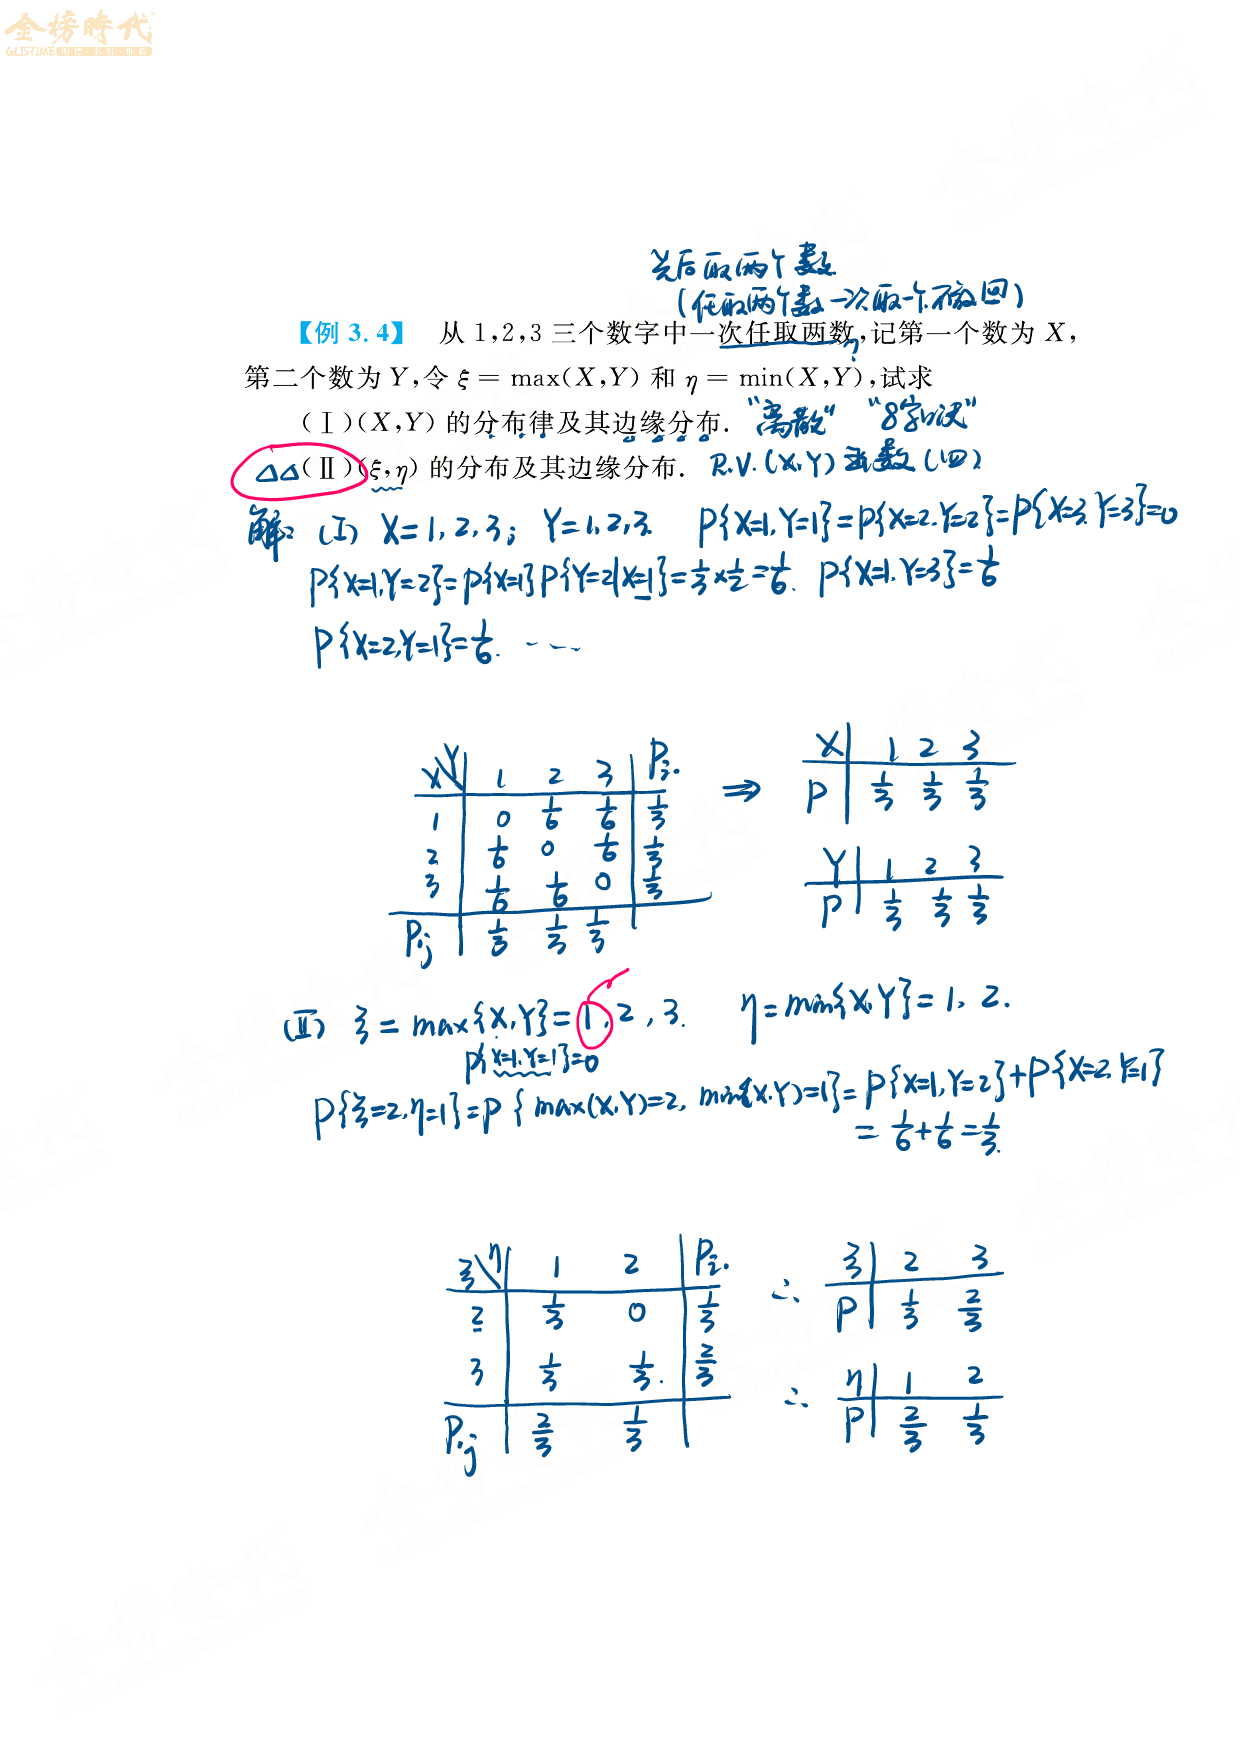 金榜時代
先后取两个数
(任取两个数一次取一个不放回)
【例 3.4】 从 1,2,3 三个数字中一次任取两数,记第一个数为 X,
第二个数为 Y,令 ξ = max(X,Y) 和 η = min(X,Y),试求
(Ⅰ)(X,Y) 的分布律及其边缘分布. "离散" "8字口诀"
△△(Ⅱ)(ξ,η) 的分布及其边缘分布. R.V.(X,Y) 函数(四)
解: (Ⅰ) X=1,2,3; Y=1,2,3. P{X=1,Y=1}=P{X=2,Y=2}=P{X=3,Y=3}=0
P{X=1,Y=2}=P{X=1}P{Y=2|X=1}=1/3×1/2=1/6. P{X=1,Y=3}=1/6
P{X=2,Y=1}=1/6. ----
X\Y 1 2 3 Pi.
1 0 1/6 1/6 1/3
2 1/6 0 1/6 1/3
3 1/6 1/6 0 1/3
P.j 1/3 1/3 1/3
⇒ X 1 2 3
P 1/3 1/3 1/3
Y 1 2 3
P 1/3 1/3 1/3
(Ⅱ) ξ = max{X,Y}=1,2,3. η=min{X,Y}=1,2.
P{X=1,Y=1}=0
P{ξ=2,η=1}=P{max(X,Y)=2, min(X,Y)=1}=P{X=1,Y=2}+P{X=2,Y=1}
= 1/6+1/6=1/3.
ξ\η 1 2 Pi.
2 1/3 0 1/3
3 1/3 1/3. 2/3
P.j 2/3 1/3
∴ ξ 2 3
P 1/3 2/3
∴ η 1 2
P 2/3 1/3